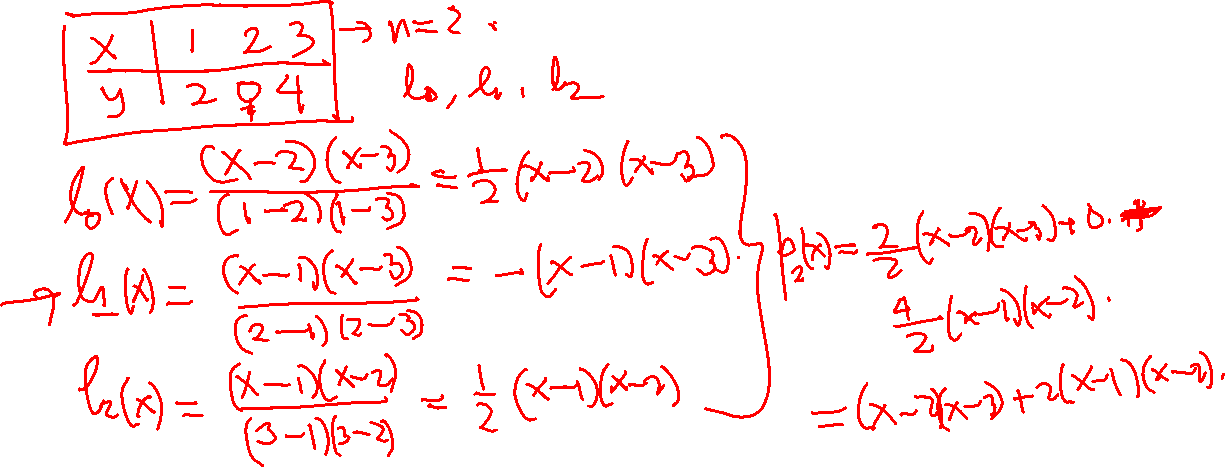 x | 1 2 3 → n=2.
y | 2 0 4 l₀, l₁, l₂
l₀(x) = (x-2)(x-3) / (1-2)(1-3) = 1/2 (x-2)(x-3)
→ l₁(x) = (x-1)(x-3) / (2-1)(2-3) = -(x-1)(x-3).
l₂(x) = (x-1)(x-2) / (3-1)(3-2) = 1/2 (x-1)(x-2)
p₂(x) = 2/2 (x-2)(x-3) + 0. +
4/2 (x-1)(x-2).
= (x-2)(x-3) + 2(x-1)(x-2).